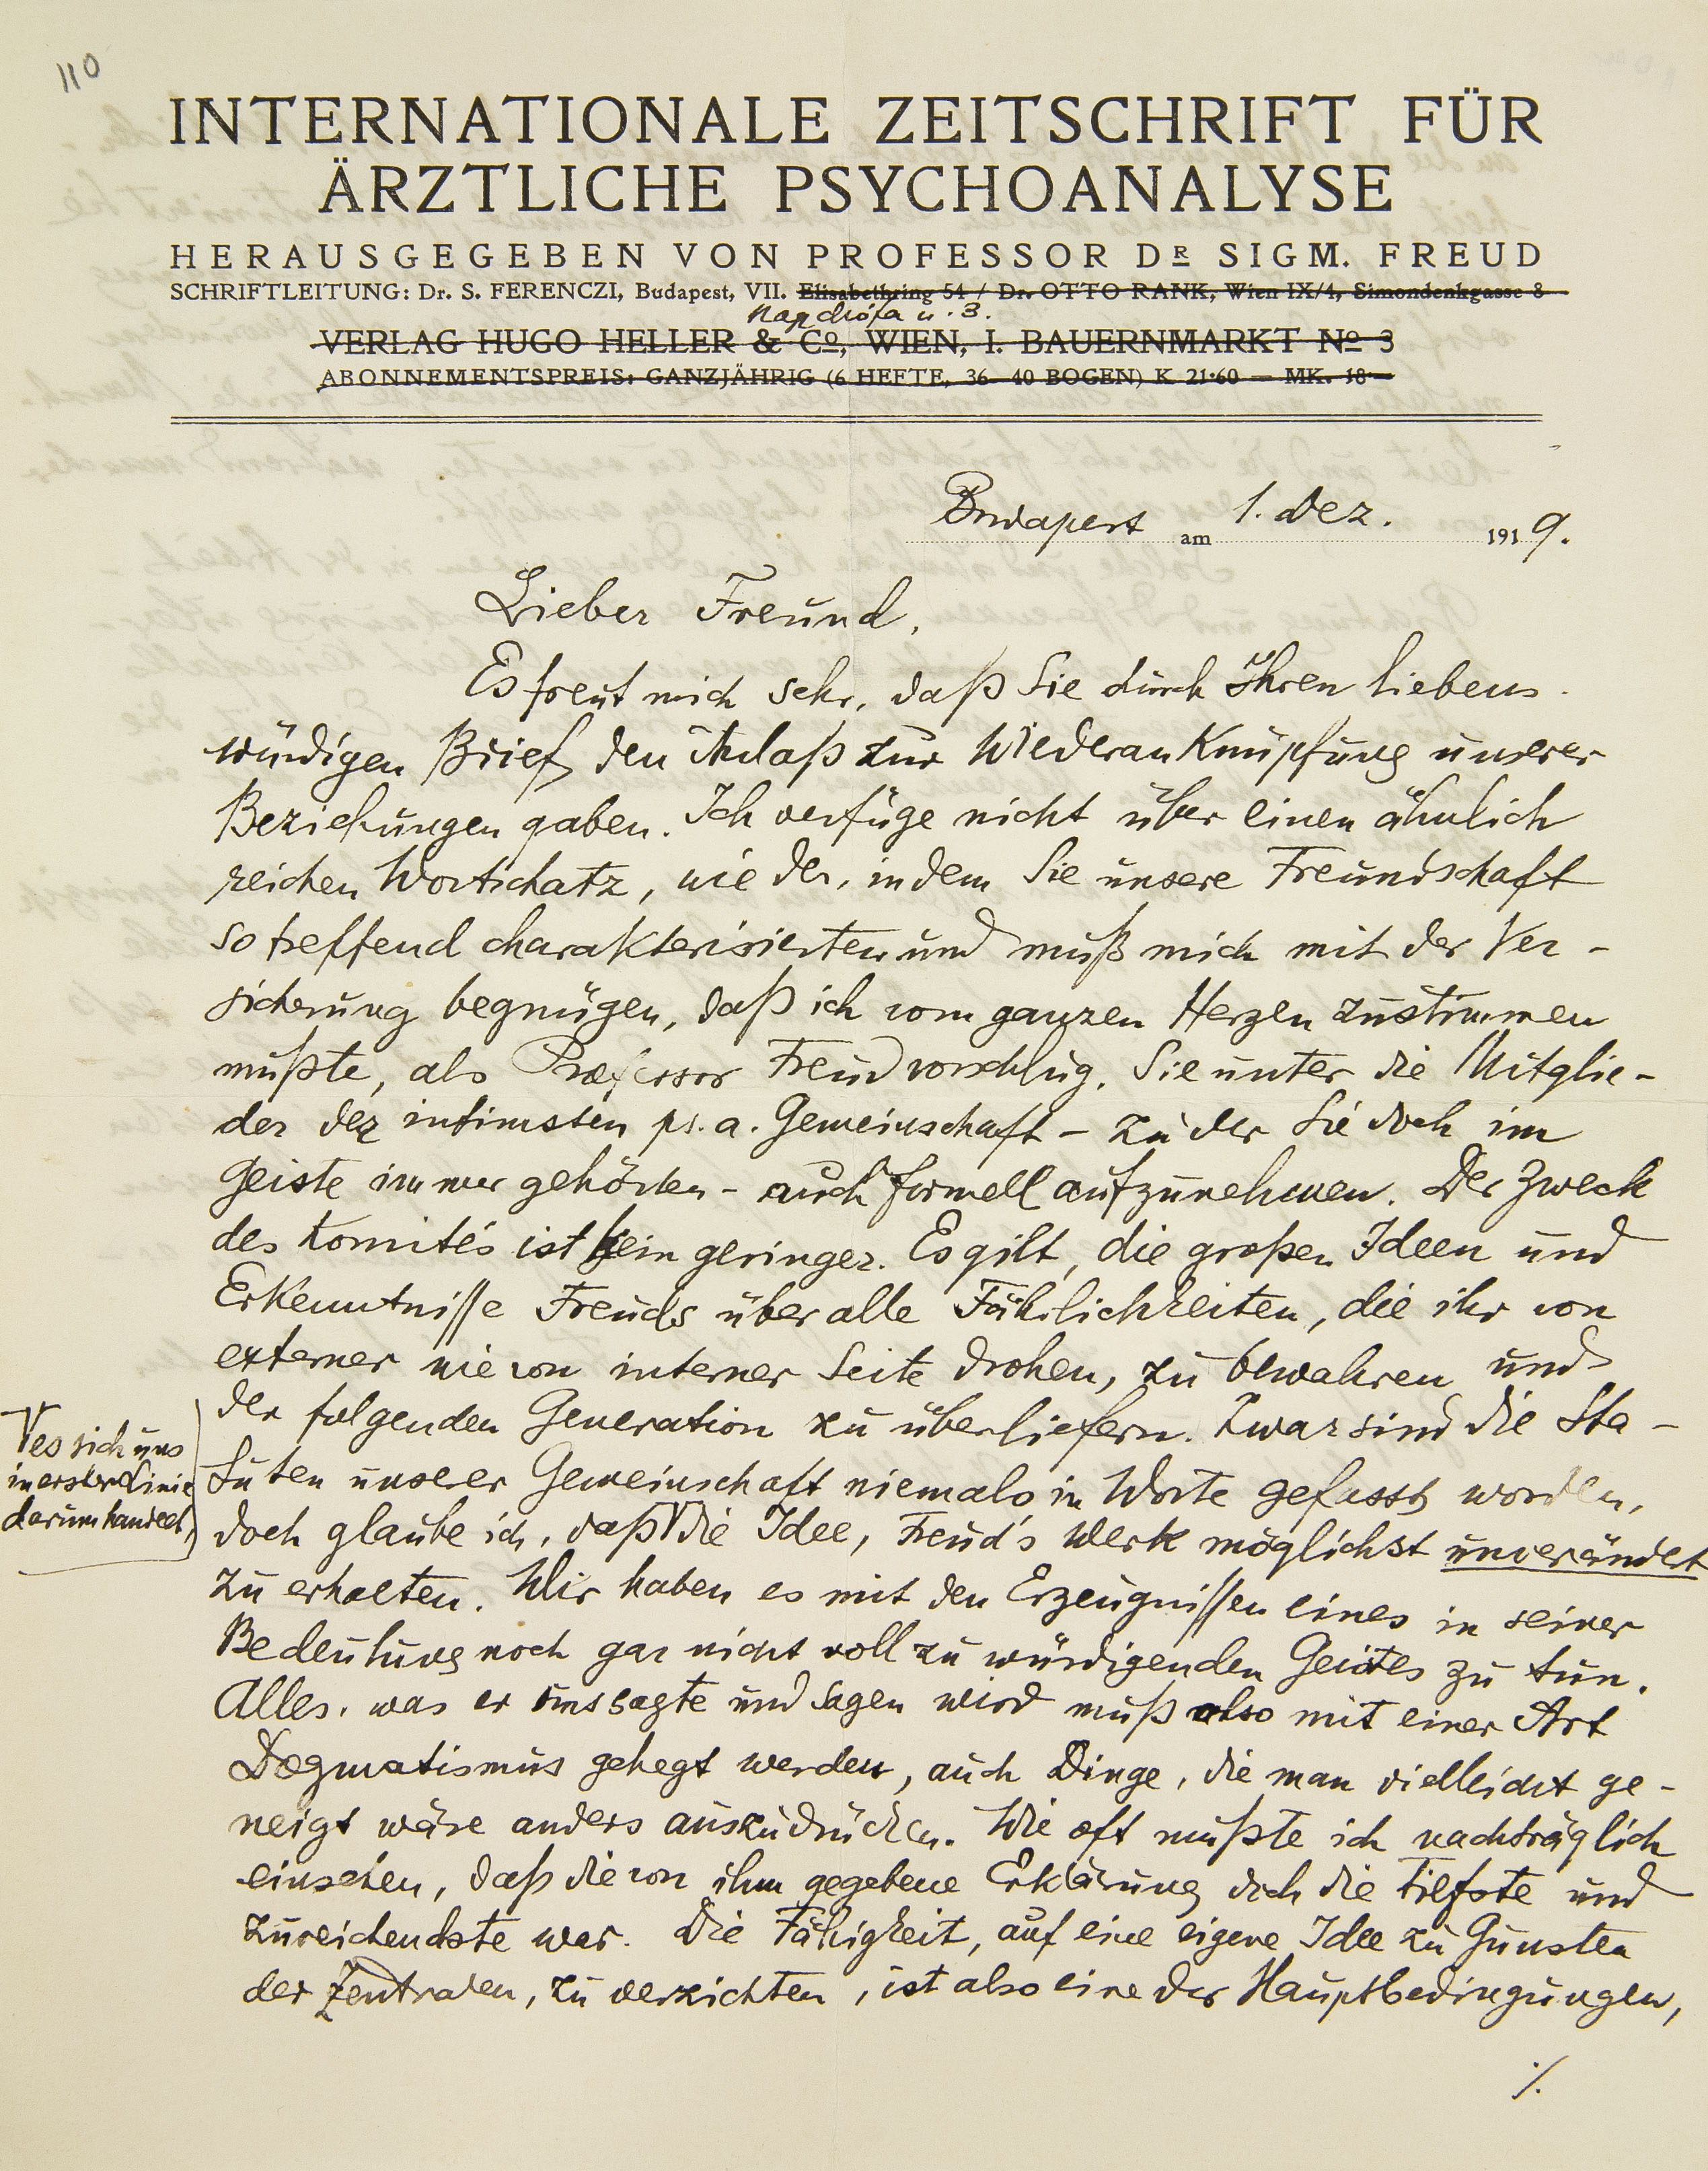 110
INTERNATIONALE ZEITSCHRIFT FÜR
ÄRZTLICHE PSYCHOANALYSE
HERAUSGEGEBEN VON PROFESSOR DR SIGM. FREUD
SCHRIFTLEITUNG: Dr. S. FERENCZI, Budapest, VII. Elisabethring 54 / Dr. OTTO RANK, Wien IX/4, Simondenkgasse 8
Nagydiófa u. 3.
VERLAG HUGO HELLER & Co, WIEN, I. BAUERNMARKT No 3
ABONNEMENTSPREIS: GANZJÄHRIG (6 HEFTE, 36–40 BOGEN) K 21·60 — MK. 18·—
Budapest am 1. Dez. 1919.
Lieber Freund,
Es freut mich sehr, daß Sie durch Ihren liebens-
würdigen Brief den Anlaß zur Wiederanknüpfung unserer
Beziehungen gaben. Ich verfüge nicht über einen ähnlich
reichen Wortschatz, wie der, in dem Sie unsere Freundschaft
so treffend charakterisierten und muß mich mit der Ver-
sicherung begnügen, daß ich vom ganzen Herzen zustimmen
mußte, als Professor Freud vorschlug, Sie unter die Mitglie-
der der intimsten ps. a. Gemeinschaft – zu der Sie doch im
Geiste immer gehörten – auch formell aufzunehmen. Der Zweck
des Komités ist kein geringer. Es gilt, die großen Ideen und
Erkenntnisse Freuds über alle Fährlichkeiten, die ihr von
externer wie von interner Seite drohen, zu bewahren und
der folgenden Generation zu überliefern. Zwar sind die Sta-
tuten unserer Gemeinschaft niemals in Worte gefasst worden,
doch glaube ich, daß V die Idee, Freud's Werk möglichst unverändert
V es sich uns
in erster Linie
darum handelt,
zu erhalten. Wir haben es mit den Erzeugnissen eines in seiner
Bedeutung noch gar nicht voll zu würdigenden Geistes zu tun.
Alles, was er uns sagte und sagen wird muß also mit einer Art
Dogmatismus gehegt werden, auch Dinge, die man vielleicht ge-
neigt wäre anders auszudrücken. Wie oft mußte ich nachträglich
einsehen, daß die von ihm gegebene Erklärung doch die tiefste und
zureichendste war. Die Fähigkeit, auf eine eigene Idee zu Gunsten
der Zentralen, zu verzichten, ist also eine der Hauptbedingungen,
./.